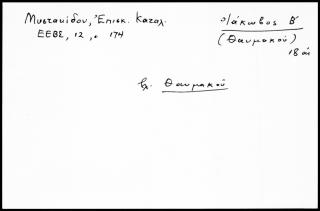 Μυστακίδου, Ἐπισκ. Κατάλ.
ΕΕΒΣ, 12, σ. 174
Ἰάκωβος Β'
(Θαυμακοῦ)
18 αἰ
βλ. Θαυμακοῦ